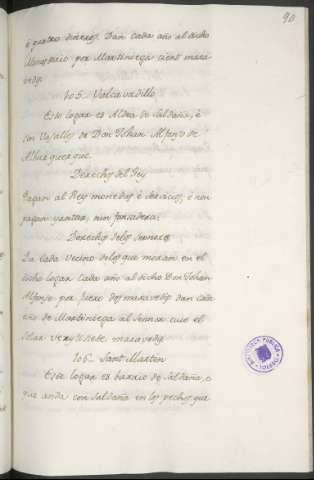 90
é quatro dineros. Dan cada año al dicho
Monesterio por Martiniega cient mara-
vedis.
105. Valcavadillo
Este logar es Aldea de Saldaña, é
son Vasallos de Don Iohan Alfonso de
Alburquerque.
Derechos del Rey
Pagan al Rey monedas é servicios, é non
pagan yantar, nin fonsadera.
Derechos de los Sennores
Da cada vecino de los que moran en el
dicho logar cada año al dicho Don Iohan
Alfonso por fuero dos maravedis. dan cada
año de Martiniega al Sennor cuio el
Solar veynte siete maravedis.
106. Sant Martin
Este logar es barrio de Saldaña, e
que anda con Saldaña en los pechos que
BIBLIOTECA PUBLICA
TOLEDO